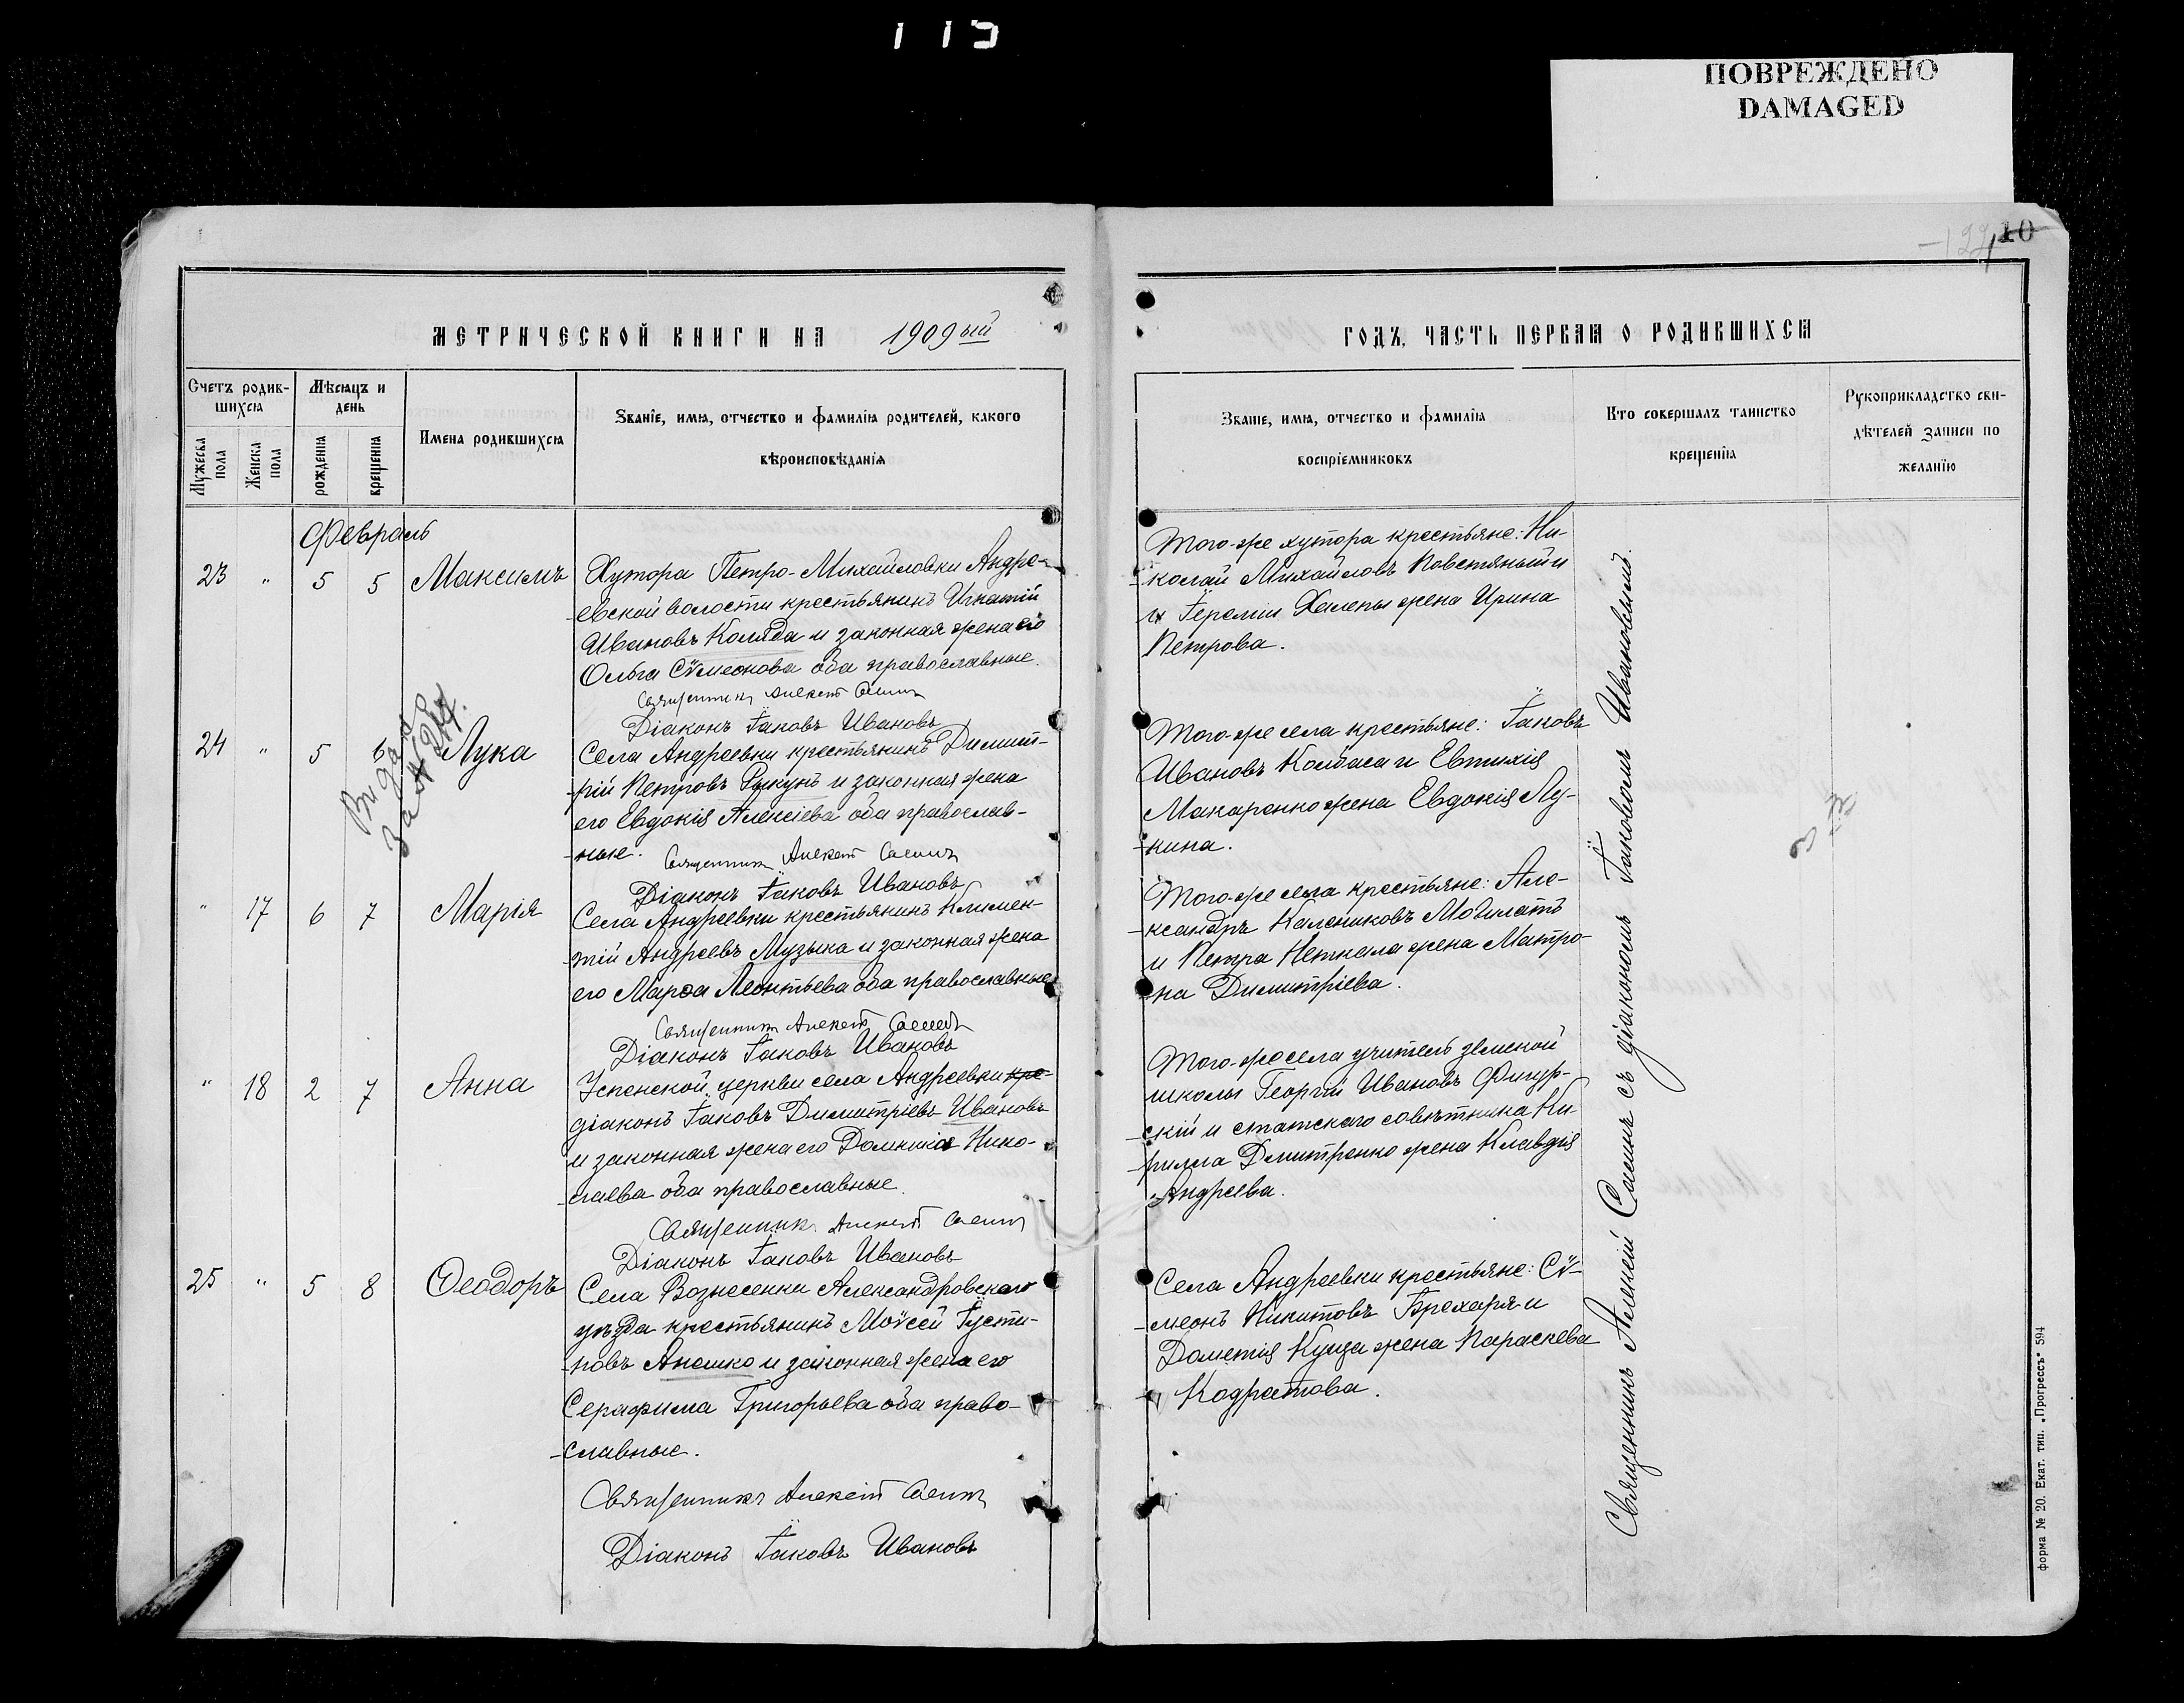 113
ПОВРЕЖДЕНО
DAMAGED
10
МЕТРИЧЕСКОЙ КНИГИ НА 1909ый
ГОДЪ, ЧАСТЬ ПЕРВАЯ О РОДИВШИХСЯ
Счетъ родив-
шихся
Мѣсяцъ и
день
Мужеска
пола
Женска
пола
рожденія
крещенія
Имена родившихся
Званіе, имя, отчество и фамилія родителей, какого
вѣроисповѣданія
Званіе, имя, отчество и фамилія
воспріемниковъ
Кто совершалъ таинство
крещенія
Рукоприкладство сви-
дѣтелей записи по
желанію
Февраль
23 " 5 5 Максимъ
Хутора Петро-Михайловки Андре-
евской волости крестьянинъ Игнатій
Ивановъ Коляда и законная жена его
Ольга Сѵмеонова оба православные.
Священникъ Алексій
Діаконъ Іаковъ Ивановъ
Того-же хутора крестьяне: Ни-
колай Михайловъ
и Іереміи Халепы жена Ирина
Петрова.
24 " 5 6 Лука
Видано
Села Андреевки крестьянинъ Димит-
рій Петровъ и законная жена
его Евдокія Алексіева оба православ-
ные.
Священникъ Алексій
Діаконъ Іаковъ Ивановъ
Того-же села крестьяне: Іаковъ
Ивановъ Колбаса и Евтихія
Макаренко жена Евдокія Лу-
кина.
" 17 6 7 Марія
Села Андреевки крестьянинъ Климен-
тій Андреевъ Музыка и законная жена
его Марѳа Леонтьева оба православные
Священникъ Алексій
Діаконъ Іаковъ Ивановъ
Того-же села крестьяне: Але-
ксандръ Калениковъ
и Петра жена Матро-
на Димитріева.
" 18 2 7 Анна
Успенской церкви села Андреевки кре-
діаконъ Іаковъ Димитріевъ Ивановъ
и законная жена его Домникія Нико-
лаева оба православные.
Священникъ Алексій
Діаконъ Іаковъ Ивановъ
Того-же села учитель земской
школы Георгій Ивановъ Фигур-
скій и статскаго совѣтника Ки-
рилла Дмитренко жена Клавдія
Андреева.
25 " 5 8 Ѳеодоръ
Села Вознесенки Александровскаго
уѣзда крестьянинъ Моѵсей Іусти-
новъ Анешко и законная жена его
Серафима Григорьева оба право-
славные.
Священникъ Алексій
Діаконъ Іаковъ Ивановъ
Села Андреевки крестьяне: Сѵ-
меонъ Никитовъ Брехаря и
Дометія Куца жена Параскева
Кодратова.
Священникъ Алексій Саенъ съ діакономъ Іаковомъ Ивановымъ.
форма № 20. Екат. тип. „Прогрессъ" 594